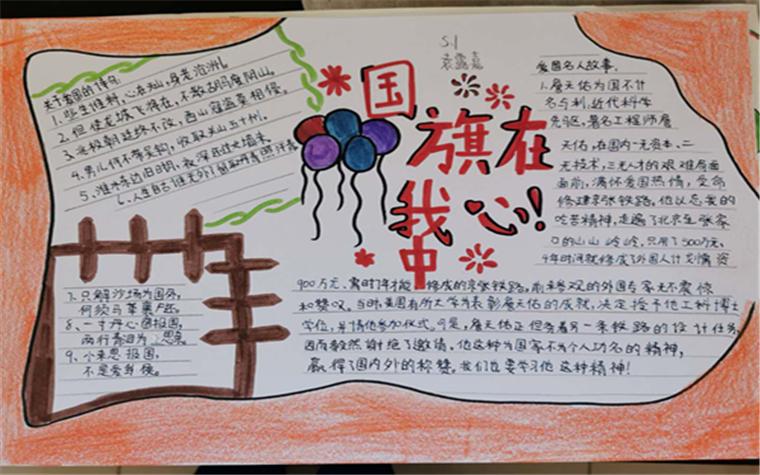 5.1
国旗在我心中!
关于爱国的诗句
1. 此生谁料，心在天山，身老沧洲。
2. 但使龙城飞将在，不教胡马度阴山。
3. 北极朝廷终不改，西山寇盗莫相侵。
4. 男儿何不带吴钩，收取关山五十州。
6. 人生自古谁无死，留取丹青照汗青
7. 只解沙场为国死，
何须马革裹尸还。
8. 一寸丹心图报国，
两行清泪为思亲
9. 个未思报国，
不是爱身侯。
爱国名人故事。
1. 詹天佑为国不计
名与利，近代科学
先驱，著名工程师詹
天佑，在国内一无资本、二
无技术，三无人才的艰难局面
面前，满怀爱国热情，受命
修建京张铁路，他以忘我的
吃苦精神，走遍了北京至张家
口的山山岭岭，只用了500万元、
4年时间就修成了外国人计划需资
900万元、需时7年才能修成的京张铁路，前来参观的外国专家无不震惊
和赞叹。当时，美国有所大学为表彰詹天佑的成就，决定授予他工科博士
学位，并请他参加仪式。可是，詹天佑正但务着另一条铁路的设计任务，
因而毅然谢绝了邀请，他这种为国家不为个人功名的精神，
赢得了国内外的称赞，我们也要学习他这种精神！